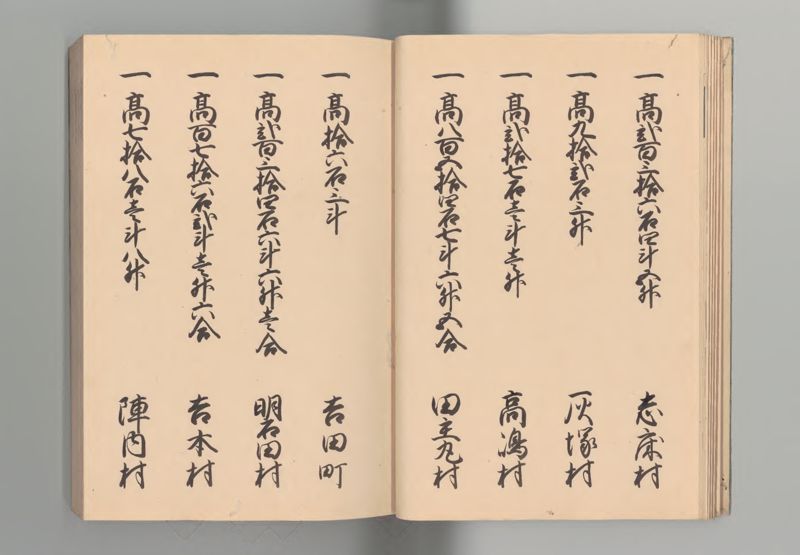 一高弐百三拾六石四斗五升 志床村
一高九拾弐石三升 灰塚村
一高弐拾七石壱斗壱升 高嶋村
一高八百五拾四石七斗六升五合 田主丸村
一高拾六石三斗 吉田町
一高弐百三拾四石六斗六升壱合 明石田村
一高百七拾六石弐斗壱升六合 吉本村
一高七拾八石壱斗八升 陣内村